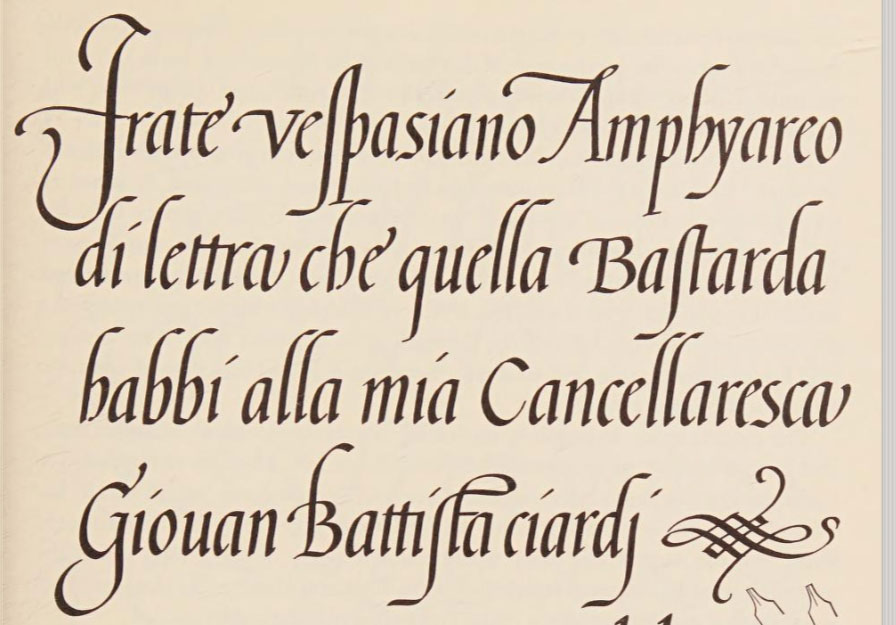 Frate veſpasiano Amphyareo
di lettra che quella Baſtarda
babbi alla mia Cancellaresca
Giouan Battiſta ciardj